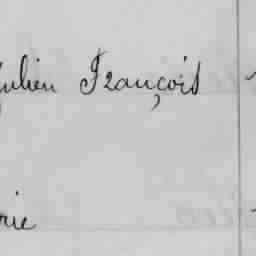 Julien François
rie